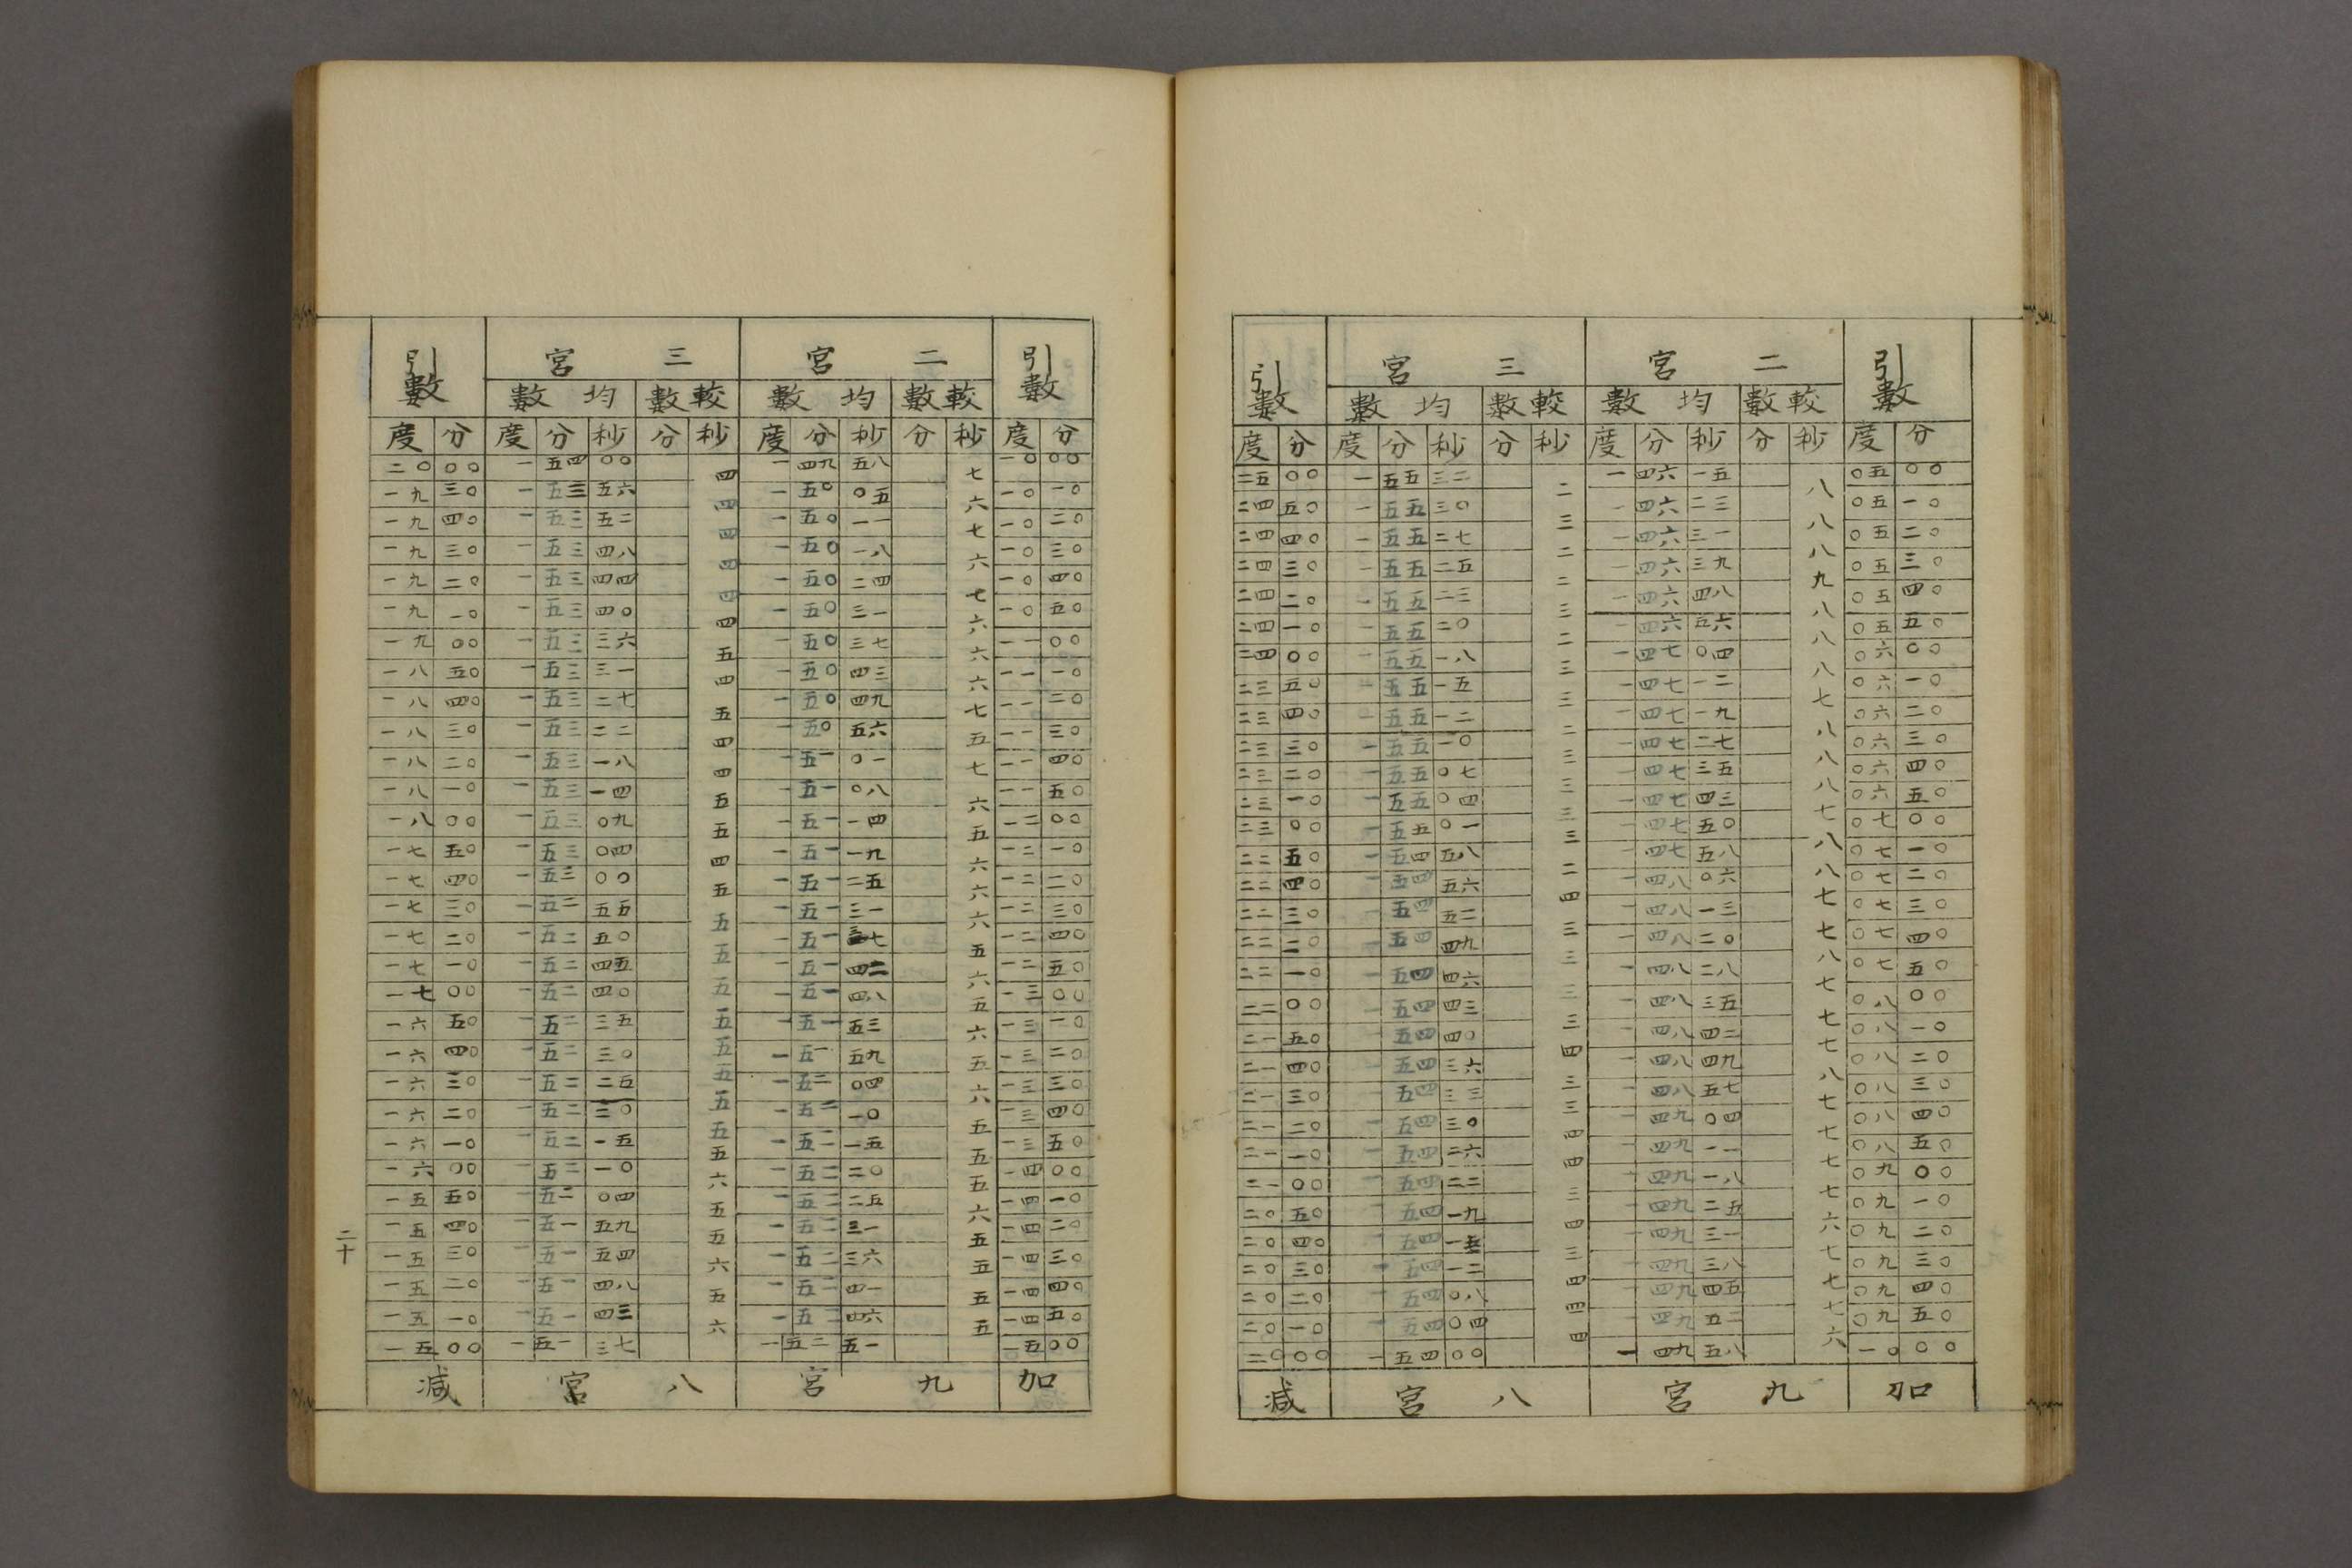 引數 三宮 二宮 引數
均數 較數 均數 較數
度 分 度 分 秒 分 秒 度 分 秒 分 秒 度 分
二五 〇〇 一 五五 三二 二 一 四六 一五 八 〇五 〇〇
二四 五〇 一 五五 三〇 三 一 四六 二三 八 〇五 一〇
二四 四〇 一 五五 二七 二 一 四六 三一 八 〇五 二〇
二四 三〇 一 五五 二五 二 一 四六 三九 九 〇五 三〇
二四 二〇 一 五五 二三 三 一 四六 四八 八 〇五 四〇
二四 一〇 一 五五 二〇 二 一 四六 五六 八 〇五 五〇
二四 〇〇 一 五五 一八 三 一 四七 〇四 八 〇六 〇〇
二三 五〇 一 五五 一五 三 一 四七 一二 七 〇六 一〇
二三 四〇 一 五五 一二 二 一 四七 一九 八 〇六 二〇
二三 三〇 一 五五 一〇 三 一 四七 二七 八 〇六 三〇
二三 二〇 一 五五 〇七 三 一 四七 三五 八 〇六 四〇
二三 一〇 一 五五 〇四 三 一 四七 四三 七 〇六 五〇
二三 〇〇 一 五五 〇一 三 一 四七 五〇 八 〇七 〇〇
二二 五〇 一 五四 五八 二 一 四七 五八 八 〇七 一〇
二二 四〇 一 五四 五六 四 一 四八 〇六 七 〇七 二〇
二二 三〇 一 五四 五二 三 一 四八 一三 七 〇七 三〇
二二 二〇 一 五四 四九 三 一 四八 二〇 八 〇七 四〇
二二 一〇 一 五四 四六 三 一 四八 二八 七 〇七 五〇
二二 〇〇 一 五四 四三 三 一 四八 三五 七 〇八 〇〇
二一 五〇 一 五四 四〇 四 一 四八 四二 七 〇八 一〇
二一 四〇 一 五四 三六 三 一 四八 四九 八 〇八 二〇
二一 三〇 一 五四 三三 三 一 四八 五七 七 〇八 三〇
二一 二〇 一 五四 三〇 四 一 四九 〇四 七 〇八 四〇
二一 一〇 一 五四 二六 四 一 四九 一一 七 〇八 五〇
二一 〇〇 一 五四 二二 三 一 四九 一八 七 〇九 〇〇
二〇 五〇 一 五四 一九 四 一 四九 二五 六 〇九 一〇
二〇 四〇 一 五四 一五 三 一 四九 三一 七 〇九 二〇
二〇 三〇 一 五四 一二 四 一 四九 三八 七 〇九 三〇
二〇 二〇 一 五四 〇八 四 一 四九 四五 七 〇九 四〇
二〇 一〇 一 五四 〇四 四 一 四九 五二 六 〇九 五〇
二〇 〇〇 一 五四 〇〇 一 四九 五八 一〇 〇〇
減 八宮 九宮 加
引數 三宮 二宮 引數
均數 較數 均數 較數
度 分 度 分 秒 分 秒 度 分 秒 分 秒 度 分
二〇 〇〇 一 五四 〇〇 四 一 四九 五八 七 一〇 〇〇
一九 三〇 一 五三 五六 四 一 五〇 〇五 六 一〇 一〇
一九 四〇 一 五三 五二 四 一 五〇 一一 七 一〇 二〇
一九 三〇 一 五三 四八 四 一 五〇 一八 六 一〇 三〇
一九 二〇 一 五三 四四 四 一 五〇 二四 七 一〇 四〇
一九 一〇 一 五三 四〇 四 一 五〇 三一 六 一〇 五〇
一九 〇〇 一 五三 三六 五 一 五〇 三七 六 一一 〇〇
一八 五〇 一 五三 三一 四 一 五〇 四三 六 一一 一〇
一八 四〇 一 五三 二七 五 一 五〇 四九 七 一一 二〇
一八 三〇 一 五三 二二 四 一 五〇 五六 五 一一 三〇
一八 二〇 一 五三 一八 四 一 五一 〇一 七 一一 四〇
一八 一〇 一 五三 一四 五 一 五一 〇八 六 一一 五〇
一八 〇〇 一 五三 〇九 五 一 五一 一四 五 一二 〇〇
一七 五〇 一 五三 〇四 四 一 五一 一九 六 一二 一〇
一七 四〇 一 五三 〇〇 五 一 五一 二五 六 一二 二〇
一七 三〇 一 五二 五五 五 一 五一 三一 六 一二 三〇
一七 二〇 一 五二 五〇 五 一 五一 三七 五 一二 四〇
一七 一〇 一 五二 四五 五 一 五一 四二 六 一二 五〇
一七 〇〇 一 五二 四〇 五 一 五一 四八 五 一三 〇〇
一六 五〇 一 五二 三五 五 一 五一 五三 六 一三 一〇
一六 四〇 一 五二 三〇 五 一 五一 五九 五 一三 二〇
一六 三〇 一 五二 二五 五 一 五二 〇四 六 一三 三〇
一六 二〇 一 五二 二〇 五 一 五二 一〇 五 一三 四〇
一六 一〇 一 五二 一五 五 一 五二 一五 五 一三 五〇
一六 〇〇 一 五二 一〇 六 一 五二 二〇 五 一四 〇〇
一五 五〇 一 五二 〇四 五 一 五二 二五 六 一四 一〇
一五 四〇 一 五一 五九 五 一 五二 三一 五 一四 二〇
一五 三〇 一 五一 五四 六 一 五二 三六 五 一四 三〇
一五 二〇 一 五一 四八 五 一 五二 四一 五 一四 四〇
一五 一〇 一 五一 四三 六 一 五二 四六 五 一四 五〇
一五 〇〇 一 五一 三七 一 五二 五一 一五 〇〇
減 八宮 九宮 加
二十